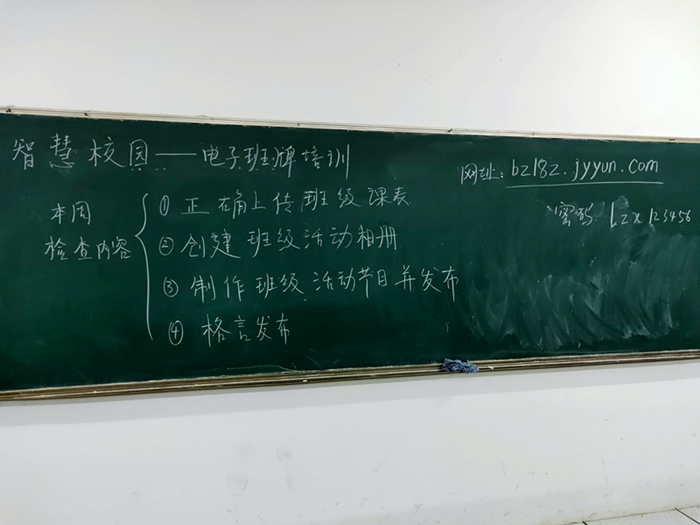 智慧校园——电子班牌培训
网址: bz18z.jyyun.com
密码 Lzx123456
本周检查内容
① 正确上传班级课表
② 创建班级活动相册
③ 制作班级活动节目并发布
④ 格言发布